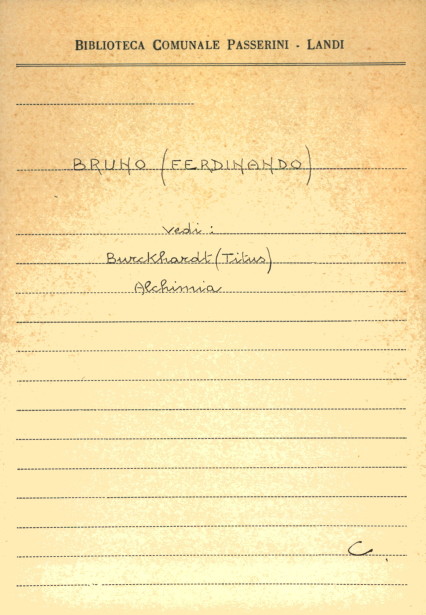 BIBLIOTECA COMUNALE PASSERINI - LANDI
BRUNO (FERDINANDO)
vedi:
Burckhardt (Titus)
Alchimia
C